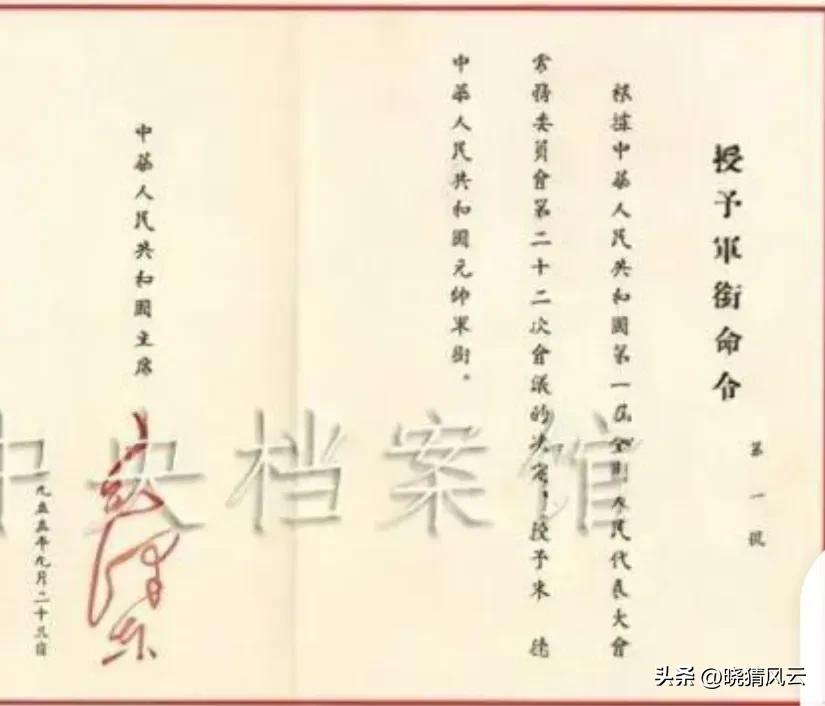 授予軍銜命令
第一號
根據中華人民共和國第一屆全國人民代表大會
常務委員會第二十二次會議的決定，授予朱 德
中華人民共和國元帥軍銜。
中華人民共和國主席
毛澤東
一九五五年九月二十三日
中央档案馆
头条 @晓猜风云